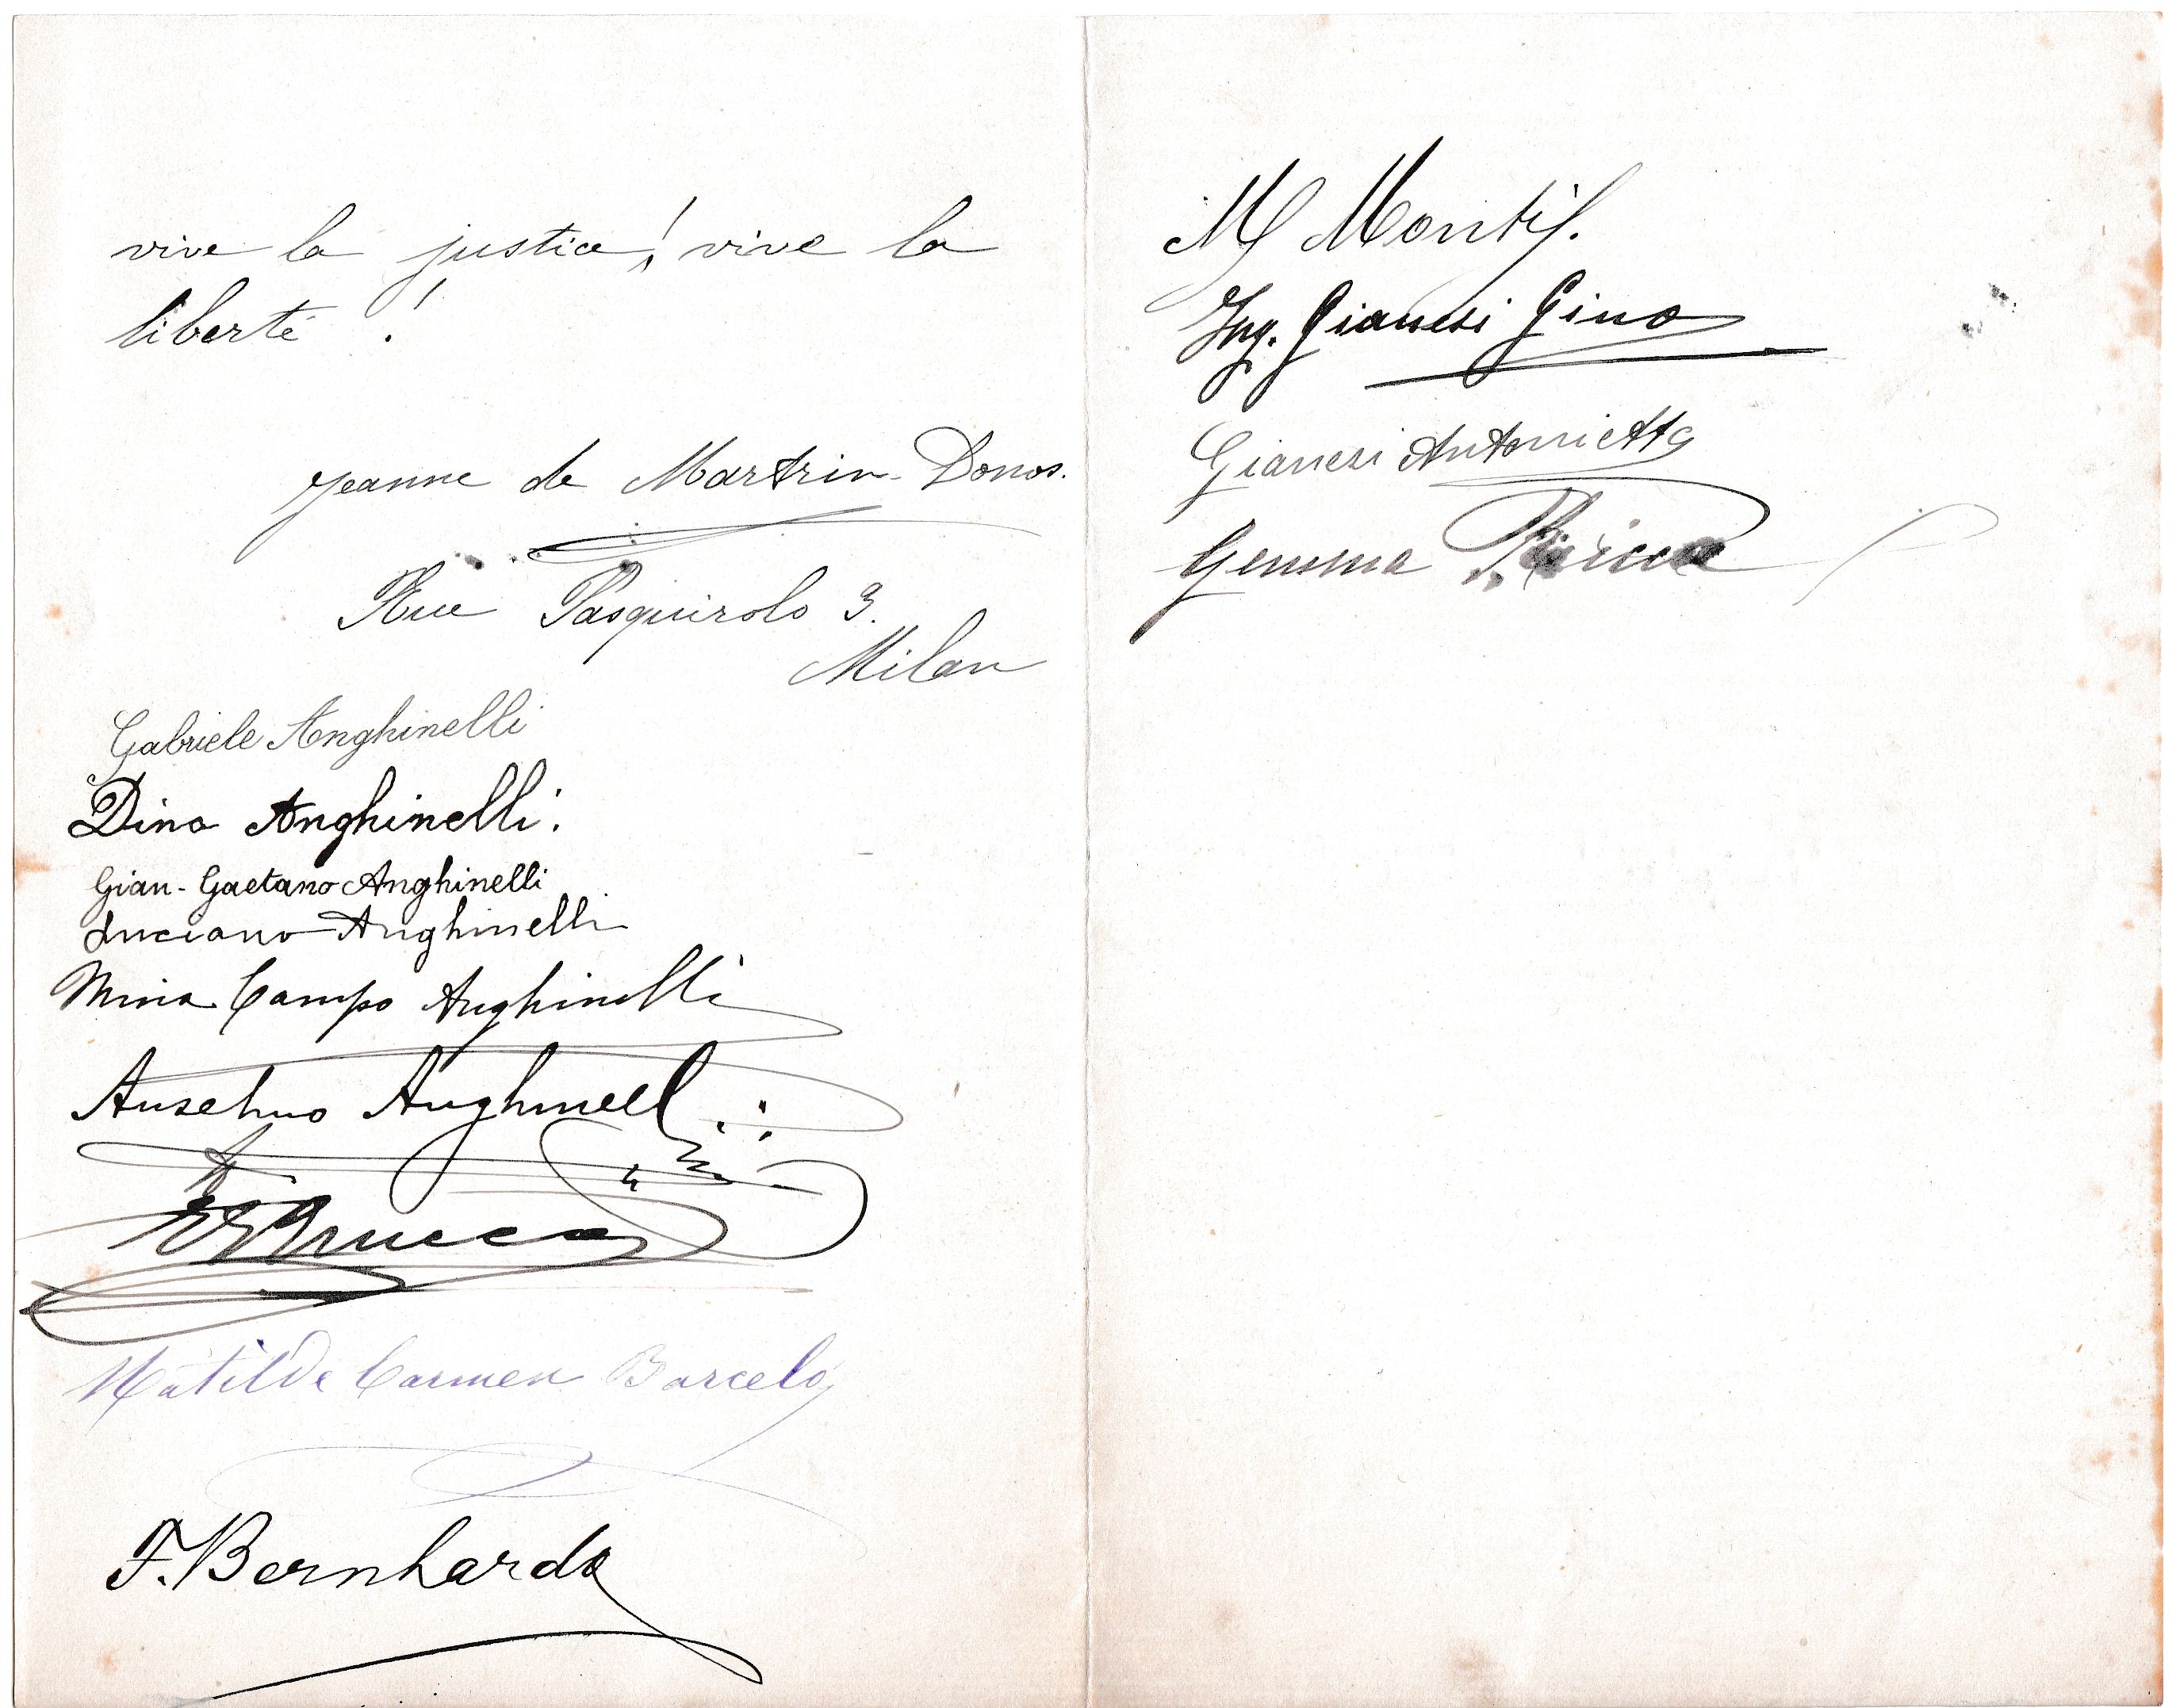 vive la justice! vive la
liberté !
Jeanne de Martrin-Donos.
Rue Pasquirolo 3.
Milan
Gabriele Anghinelli
Dino Anghinelli.
Gian-Gaetano Anghinelli
Luciano Anghinelli
Nina Campo Anghinelli
Anselmo Anghinelli
Matilde Carmen Barceló
F. Bernhardo
M Monti
Ing. Gianesi Gino
Gianesi Antonietta
Gemma